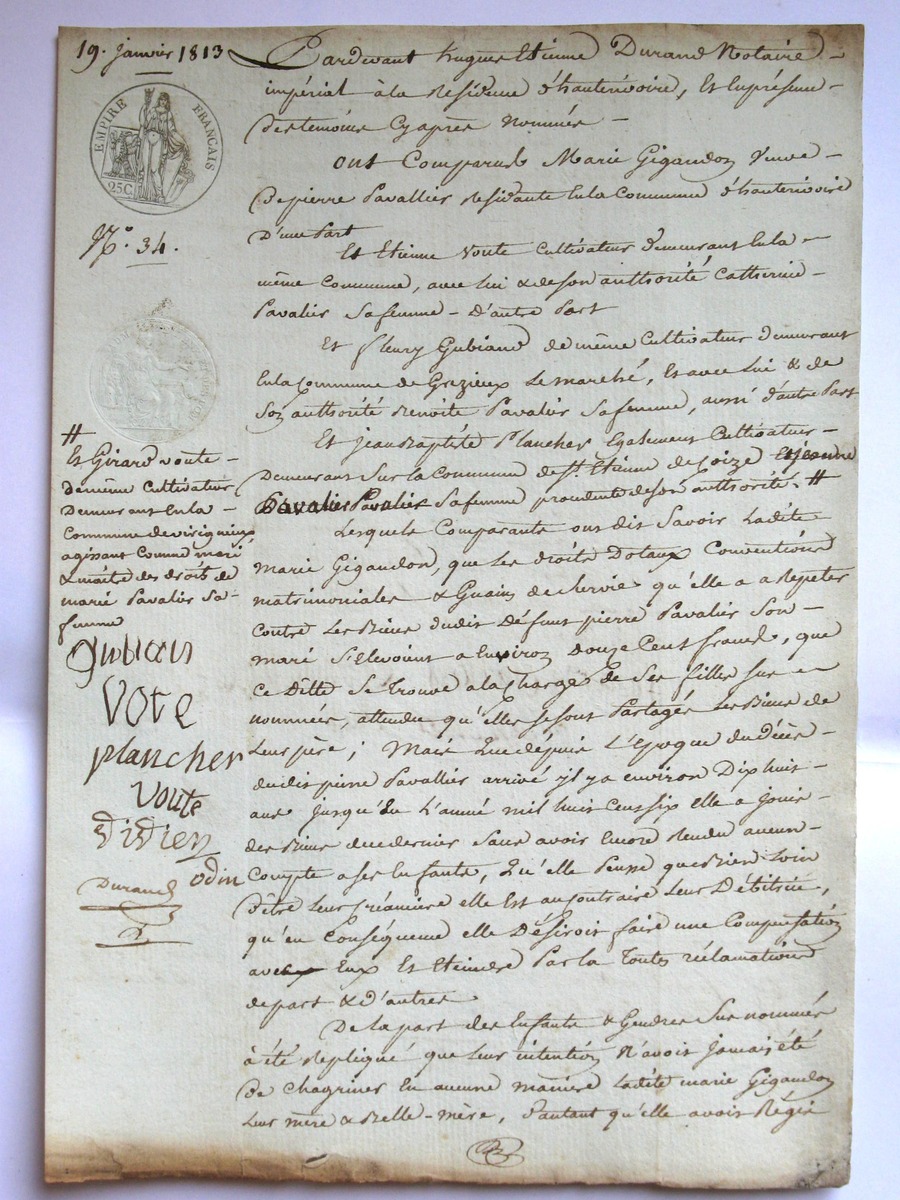 19. Janvier 1813
EMPIRE FRANÇAIS
25C.
N.° 34.
Pardevant hugues Etienne Durand Notaire
impérial à la Residence d'hauterivoire, Et En présence
Des temoins Cy après Nommés
Ont Comparu Marie Gigandon Veuve
De pierre Pavallier Residante En la Commune d'hauterivoire
D'une Part
Et Etienne Voute Cultivateur demeurant En la
même Commune, avec lui & de son authorité Catherine
Pavalier Sa femme - d'autre Part
Et fleury Gubiand de même Cultivateur demeurant
En la Commune de Grezieux Le marché, Et avec Lui & de
Son authorité Benoite Pavalier Sa femme, aussi d'autre Part
Et Jean Baptiste Plancher Egalement Cultivateur
Demeurant Sur la Commune de St. Etienne de
Pavalier Sa femme procedente de son authorité. #
Lesquels Comparants ont dit Savoir Ladite
Marie Gigandon, que Les droits Dotaux Conventions
matrimoniales & Guains de Survie qu'elle a a Repeter
Contre Les Biens dudit Défunt pierre Pavalier Son
mari S'élevoient a Environ douze Cent francs, que
Ce Dette Se Trouve a la Charge de Ses filles Sus
nommées, attendu qu'elles Se Sont Partagés Les Biens de
Leur père; Mais Que dépuis L'époque du décès
dudit pierre Pavallier arrivé il y a environ Dix huit
ans jusqu'à L'année mil huit Cent Six elle a Joui
des Biens de ce dernier Sans avoir Encore Rendu aucun
Compte a Ses Enfants, Qu'elle Pense que Bien Loin
D'être Leur Créancière elle Est au Contraire Leur Débitrice,
qu'en Conséquence elle Désiroit faire une Compensation
avec Eux Et Eteindre Par la Toutes réclamations
de part & d'autres
De la part des Enfants & Gendres Sus nommés
à été Repliqué que Leur intention N'avoit Jamais été
De Chagriner En aucune manière Ladite marie Gigandon
Leur mère & Belle-mère, d'autant qu'elle avoit Régie
#
Et Girard Voute
de même Cultivateur
Demeurant En la
Commune de virigneux
agissant Comme mari
& maitre des droits de
marie Pavalier Sa
femme
Gubian
Vote
plancher
Voute
Didier
odin
Durand